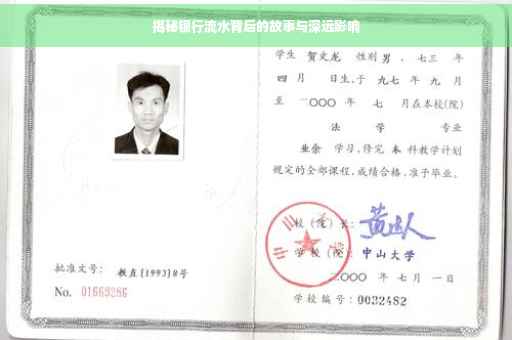 揭秘银行流水背后的故事与深远影响
学生 贺文龙 性别 男 、七三 年
四 月 日生,于 九七 年 九 月
至 二〇〇〇 年 七 月在本校(院)
法 学 专业
业余 学习,修完 本 科教学计划
规定的全部课程,成绩合格,准予毕业。
校 (院) 长:
学 校 (院): 中山大学
二〇〇〇 年 七 月 一 日
批准文号: 教直[1993]8号
No. 01669286
学校编号: 0032482